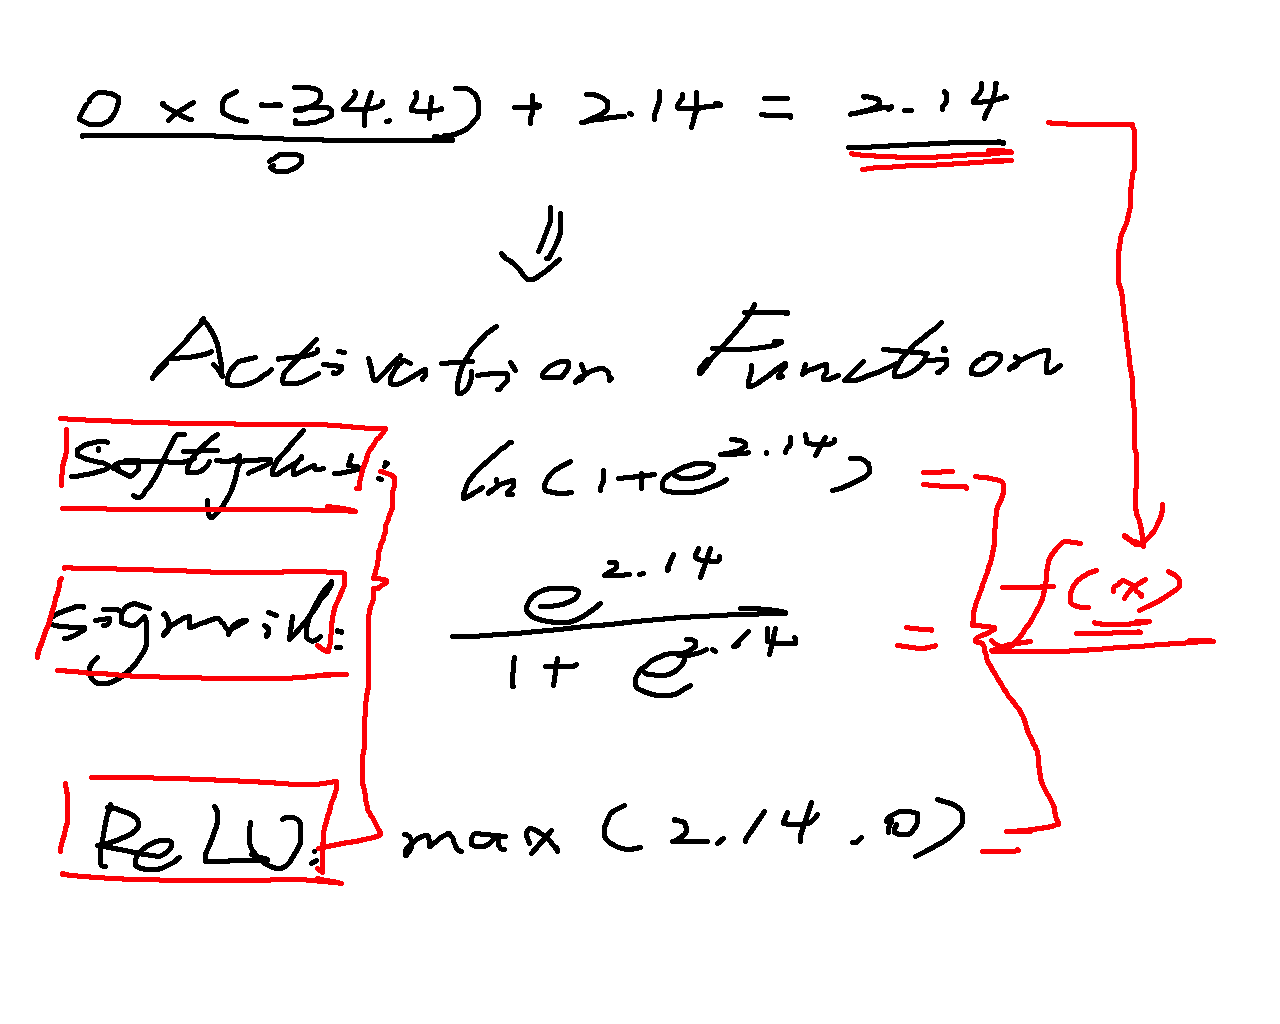 0 × (-34.4) + 2.14 = 2.14
0
⇓
Activation Function
Softplus: ln(1+e^2.14) =
f(x)
sigmoid: e^2.14 / 1 + e^2.14 =
ReLU: max(2.14, 0) =